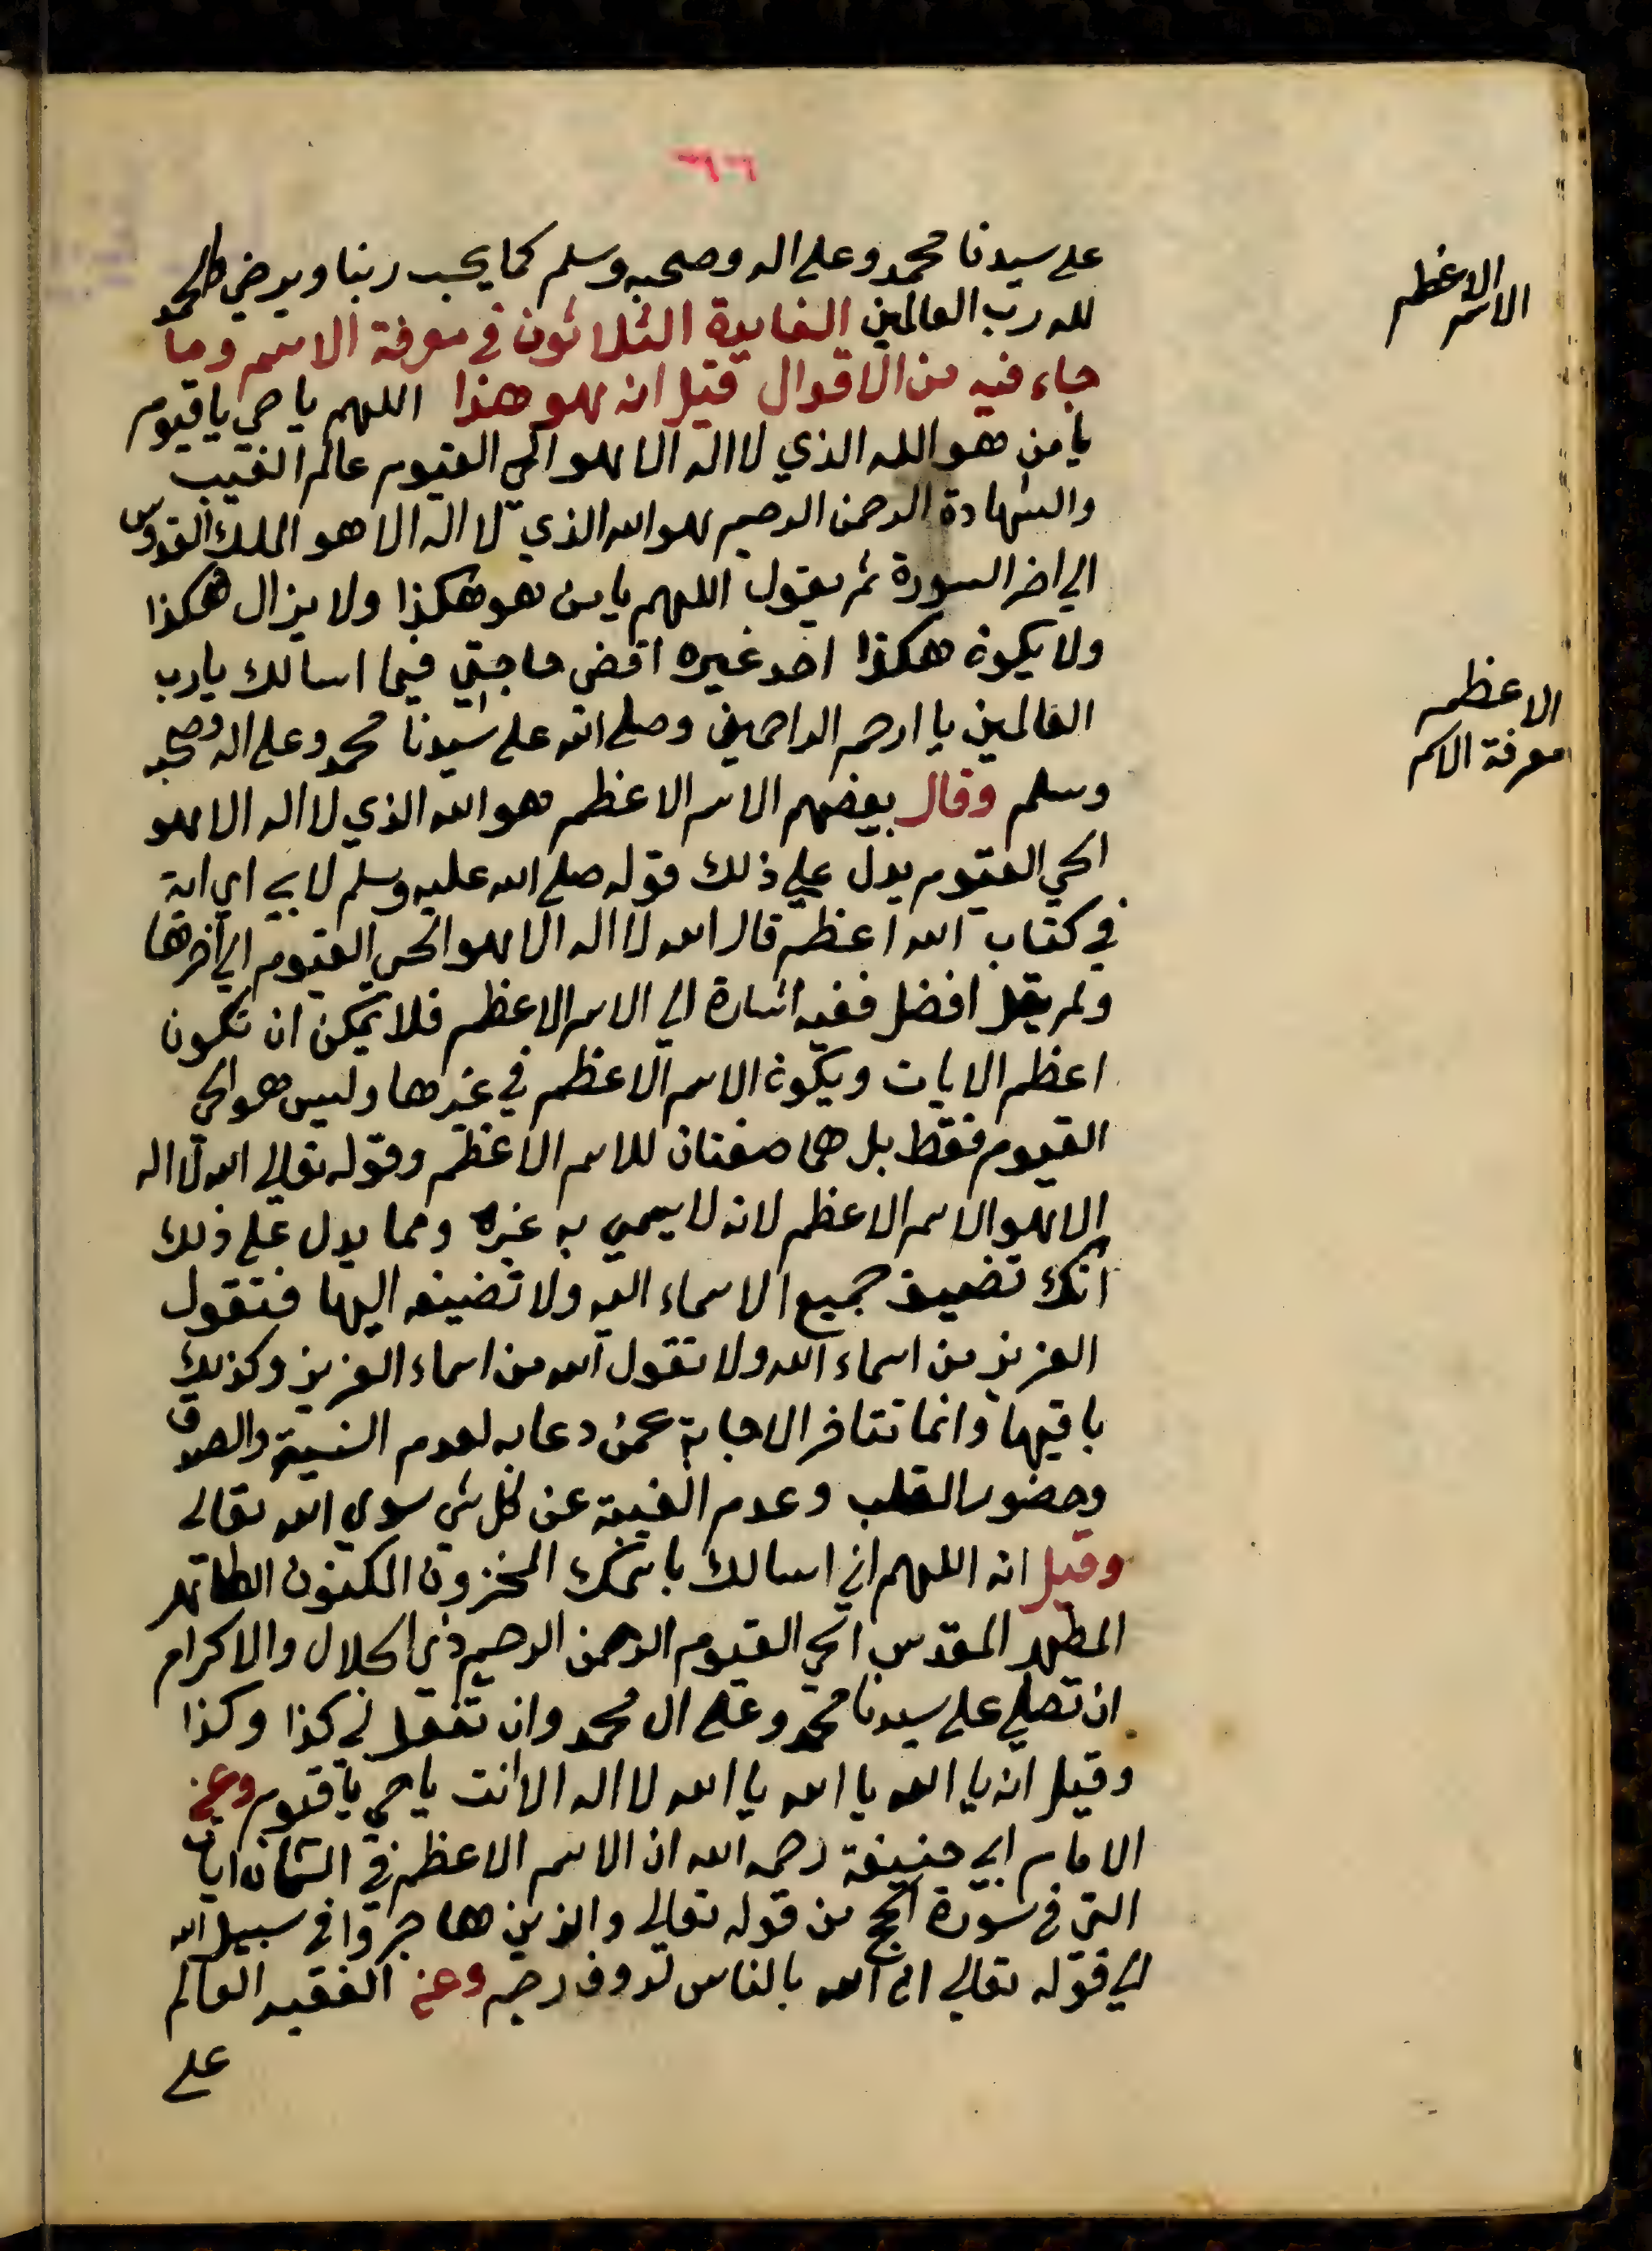 ٦٩٦
على سيدنا محمد وعلى اله وصحبه وسلم كما يحب ربنا ويرضي والحمد
لله رب العالمين الفايدة الثلاثون في معرفة الاسم وما
جاء فيه من الاقوال قيل انه هو هذا اللهم يا حي يا قيوم
يا من هو الله الذي لا اله الا هو الحي القيوم عالم الغيب
والشهادة الرحمن الرحيم هو الله الذي لا اله الا هو الملك القدوس
الي اخر السورة ثم يقول اللهم يا من هو هكذا ولا يزال هكذا
ولا يكون هكذا احد غيره اقض حاجتي فيما اسالك يا رب
العالمين يا ارحم الراحمين وصلى الله على سيدنا محمد وعلى اله وصحبه
وسلم وقال بعضهم الاسم الاعظم هو الله الذي لا اله الا هو
الحي القيوم يدل علي ذلك قوله صلى الله عليه وسلم لابي اي اية
في كتاب الله اعظم قال الله لا اله الا هو الحي القيوم الي اخرها
ولم يقل افضل ففيه اشارة الي الاسم الاعظم فلا يمكن ان تكون
اعظم الايات ويكون الاسم الاعظم في غيرها وليس هو الحي
القيوم فقط بل هما صفتان للاسم الاعظم وقوله تعالي الله لا اله
الا هو الاسم الاعظم لانه لا يسمي به غيره ومما يدل علي ذلك
انك تضيف جميع الاسماء اليه ولا تضيفه اليها فتقول
العزيز من اسماء الله ولا تقول الله من اسماء العزيز وكذلك
باقيها وانما تتاخر الاجابة عمن دعا به لعدم النية والصدق
وحضور القلب وعدم الغيبة عن كل شي سوي الله تعالي
وقيل انه اللهم اني اسالك باسمك المخزون المكنون الطاهر
المطهر المقدس الحي القيوم الرحمن الرحيم ذي الجلال والاكرام
ان تصلي على سيدنا محمد وعلى ال محمد وان تفعل لي كذا وكذا
وقيل انه يا الله يا الله يا الله لا اله الا انت يا حي يا قيوم وعن
الامام ابي حنيفة رحمه الله ان الاسم الاعظم في الثمان ايات
التي في سورة الحج من قوله تعالي والذين هاجروا في سبيل الله
الي قوله تعالي ان الله بالناس لرووف رحيم وعن الفقيه العالم
على
الاعظم
الاسم
الاعظم
معرفة الاسم